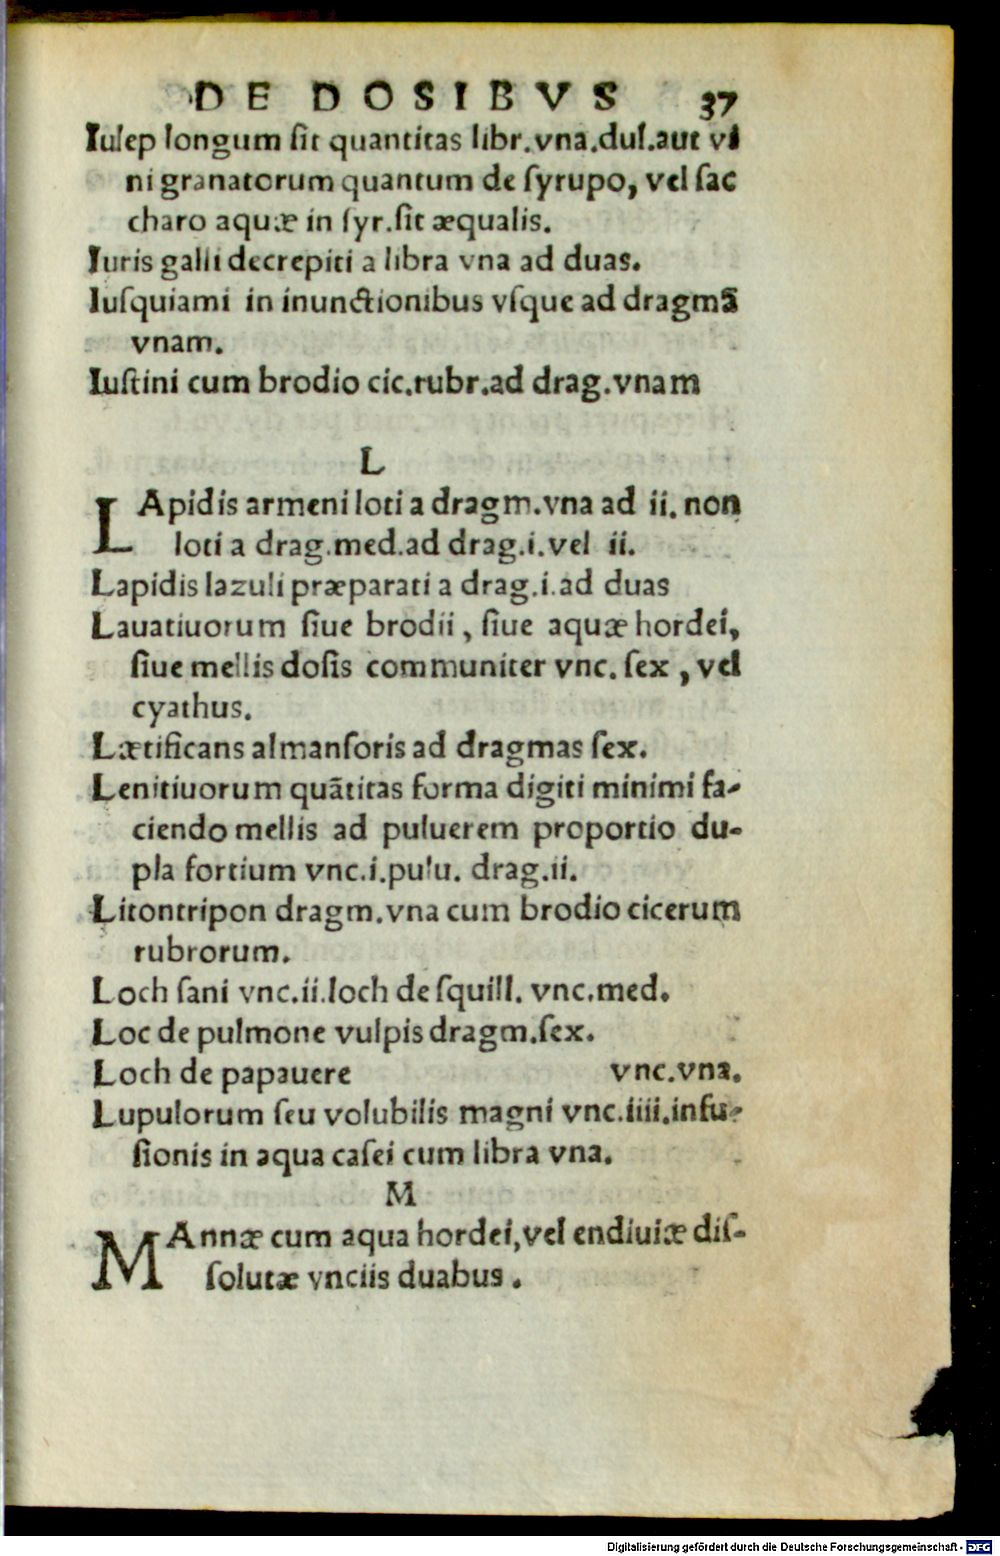 DE DOSIBVS 37
Iulep longum sit quantitas libr.vna.dul.aut vi
ni granatorum quantum de syrupo, vel sac
charo aquæ in syr.sit æqualis.
Iuris galli decrepiti a libra vna ad duas.
Iusquiami in inunctionibus vsque ad dragmā
vnam.
Iustini cum brodio cic.rubr.ad drag.vnam
L
LApidis armeni loti a dragm.vna ad ii. non
loti a drag.med.ad drag.i.vel ii.
Lapidis lazuli præparati a drag.i.ad duas
Lauatiuorum siue brodii, siue aquæ hordei,
siue mellis dosis communiter vnc. sex, vel
cyathus.
Lætificans almansoris ad dragmas sex.
Lenitiuorum quātitas forma digiti minimi fa-
ciendo mellis ad puluerem proportio du-
pla fortium vnc.i.pulu. drag.ii.
Litontripon dragm.vna cum brodio cicerum
rubrorum.
Loch sani vnc.ii.loch de squill. vnc.med.
Loc de pulmone vulpis dragm.sex.
Loch de papauere vnc.vna.
Lupulorum seu volubilis magni vnc.iiii.infu-
sionis in aqua casei cum libra vna.
M
MAnnæ cum aqua hordei,vel endiuiæ dis-
solutæ vnciis duabus.
Digitalisierung gefördert durch die Deutsche Forschungsgemeinschaft - DFG